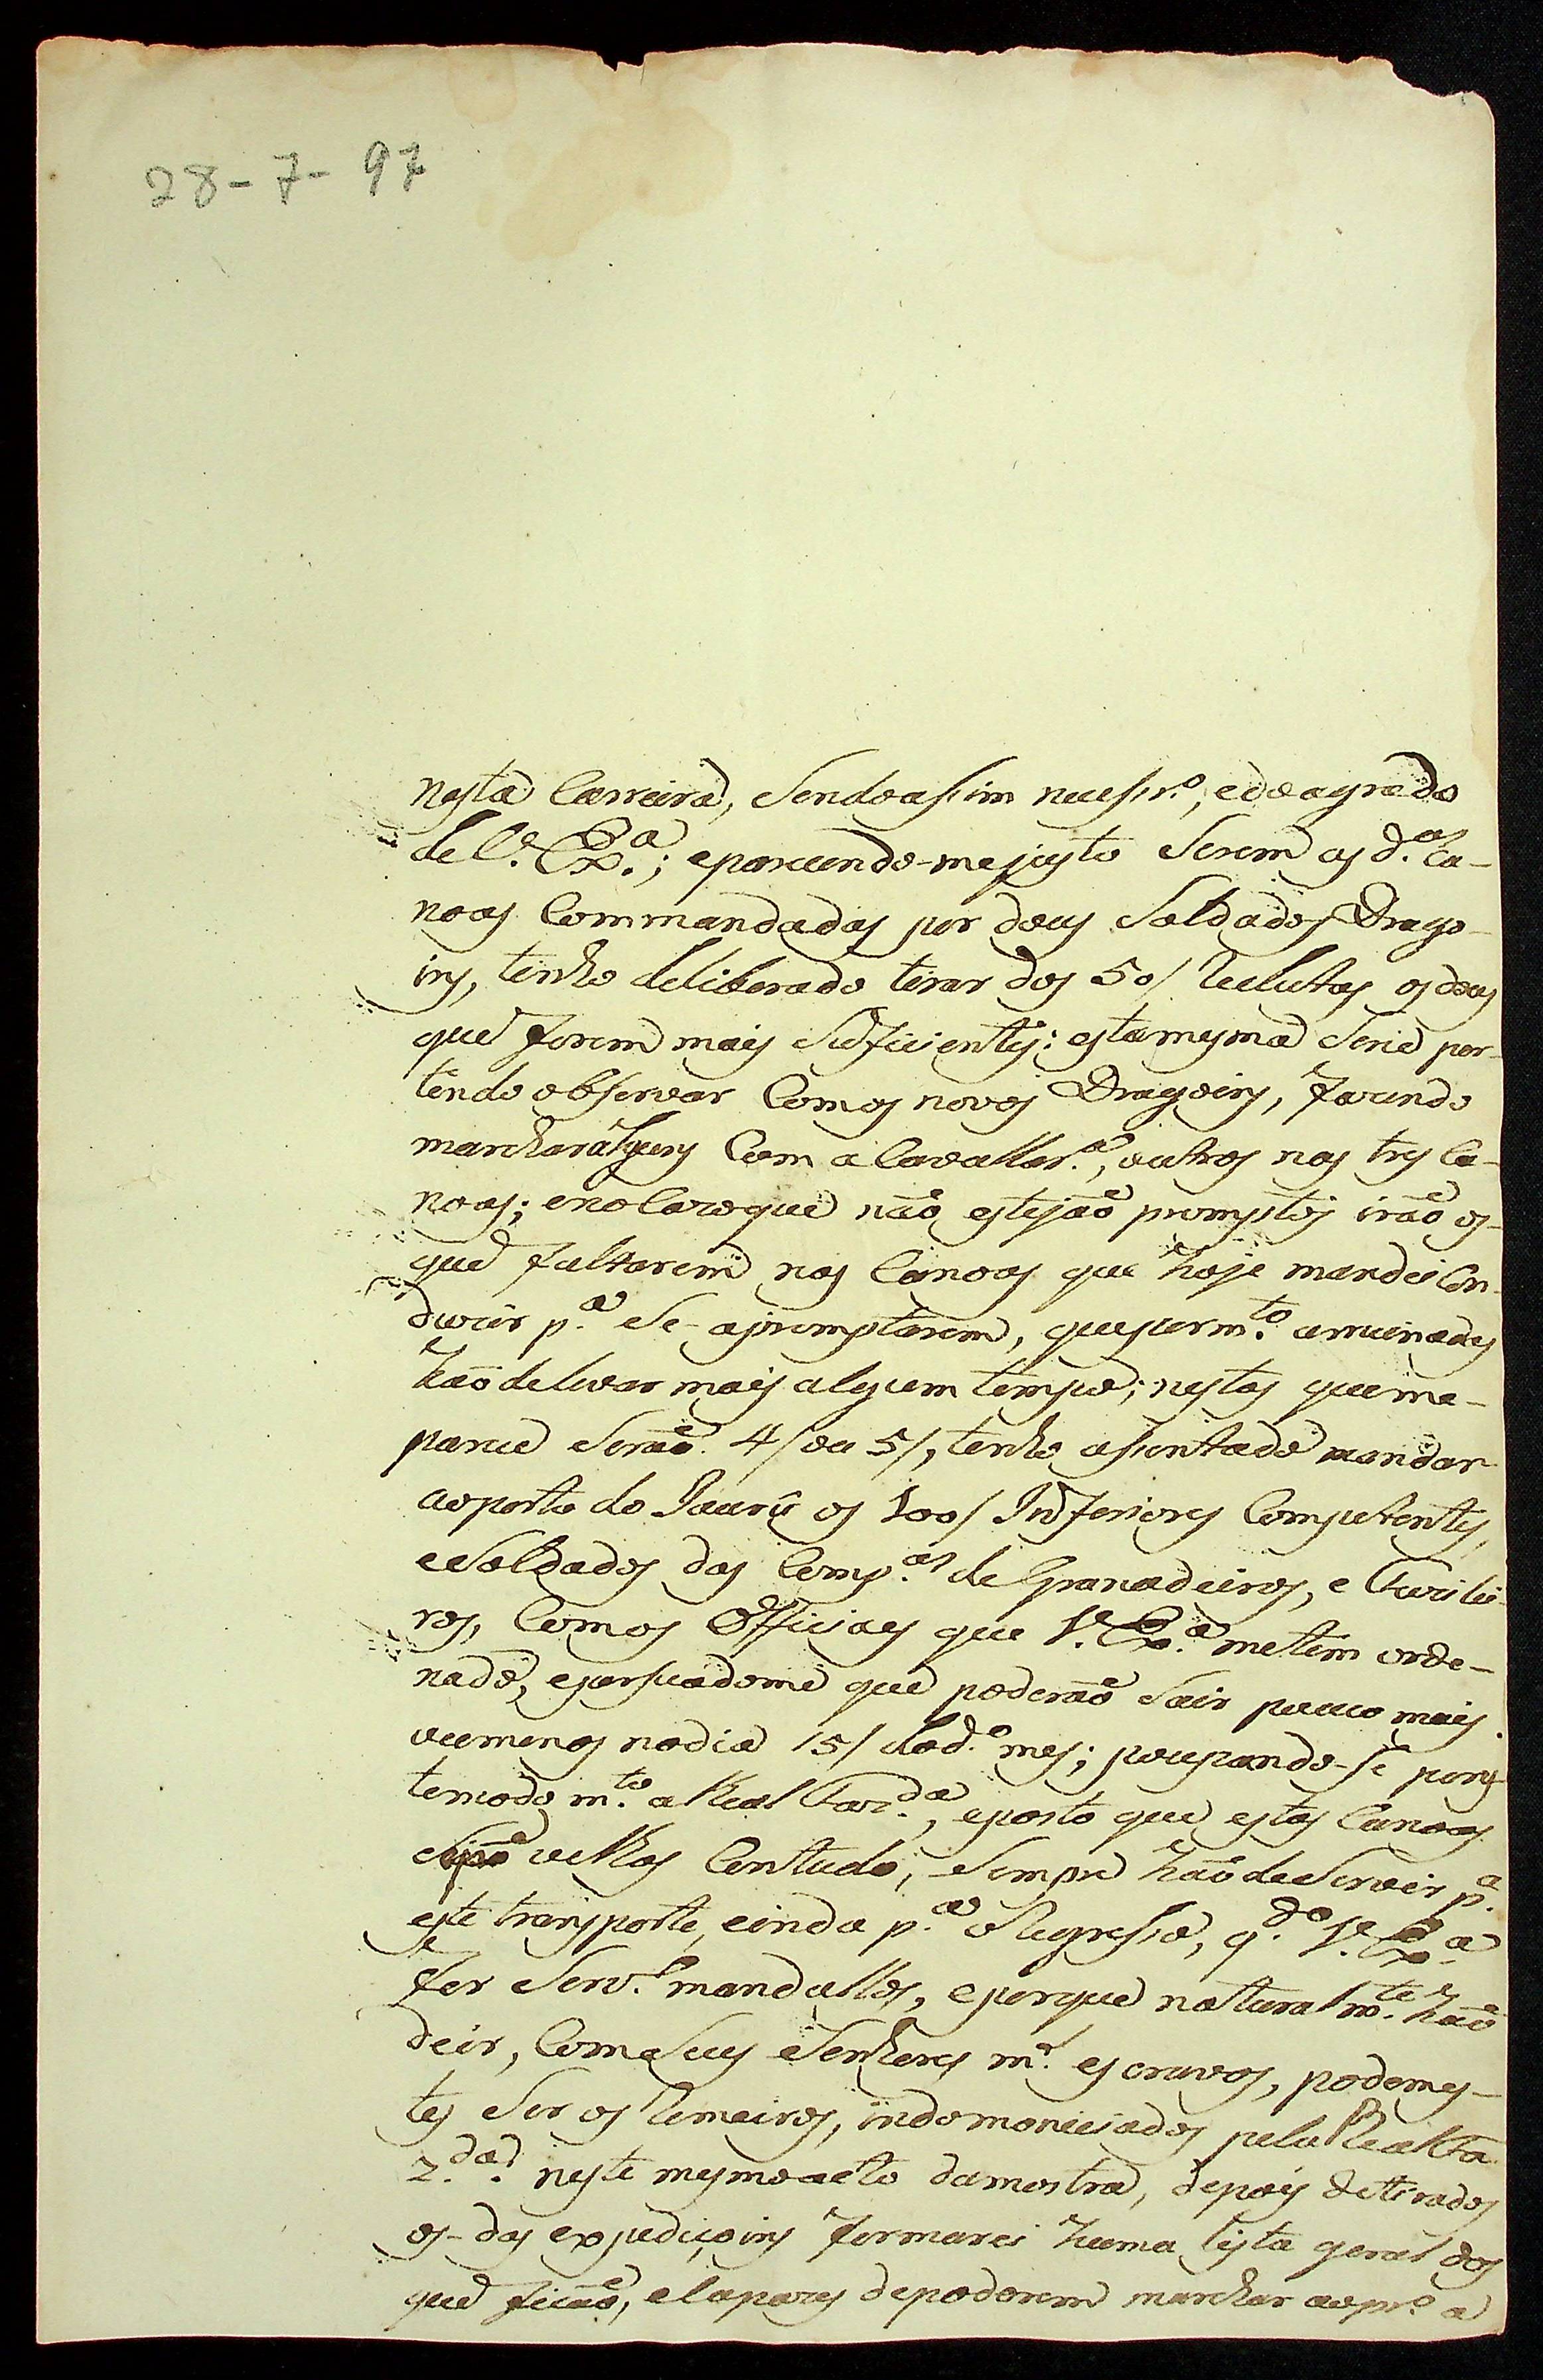 28-7-97
nesta Carreira, Sendo assim necessr.º, e do agrado
de V.ª Ex.ª; eparecendo-me justo Serem as d.as Ca-
noas Commandadas por dous Soldados Drago-
ins, tenho deliberado tirar dos 50/ Reclutas os dous
que forem mais Sufficientes: esta mesma Serie per-
tendo observar Com os novos Dragoins, fazendo
marchar alguns Com a Cavallar.ª, outros nas tres Ca-
noas; eno Cazo que não estejão promptos irão os
que faltarem nas Canoas que hoje mandei Con-
duzir p.ª Se-apromptarem, que por m.to arruinadas
hão de levar mais algum tempo; nestas que me-
parece Serão 4/ ou 5/, tenho assentado mandar
ao porto do Jaurû os 100/ Inferiores Competentes,
e Soldados das Comp.as de Granadeiros, e Fuzilei-
ros, Com os Officiaes que V.ª Ex.ª me tem orde-
nado, e persuadome que poderão Sair pouco mais
ou menos no dia 15/ do d.º mes; poupando-se por es-
te modo m.to a Real Faz.da, e posto que estas Canoas
Sejão velhas Contudo, Sempre hão de Servir p.ª
este transporte, e inda p.ª o Regresso, q.do V.ª Ex.ª
for Serv.º mandallos, e porque naturalm.te hão
de ir, Com Seus Senhores m.s escravos, podem es-
tes Ser os Remeiros, indo moniciados pela Real Fa-
z.da. neste mesmo acto da mostra, depois de tirados
os-das expediçoins formarei huma lista geral dos
que ficão, e Capazes de poderem marchar ao pr.º a